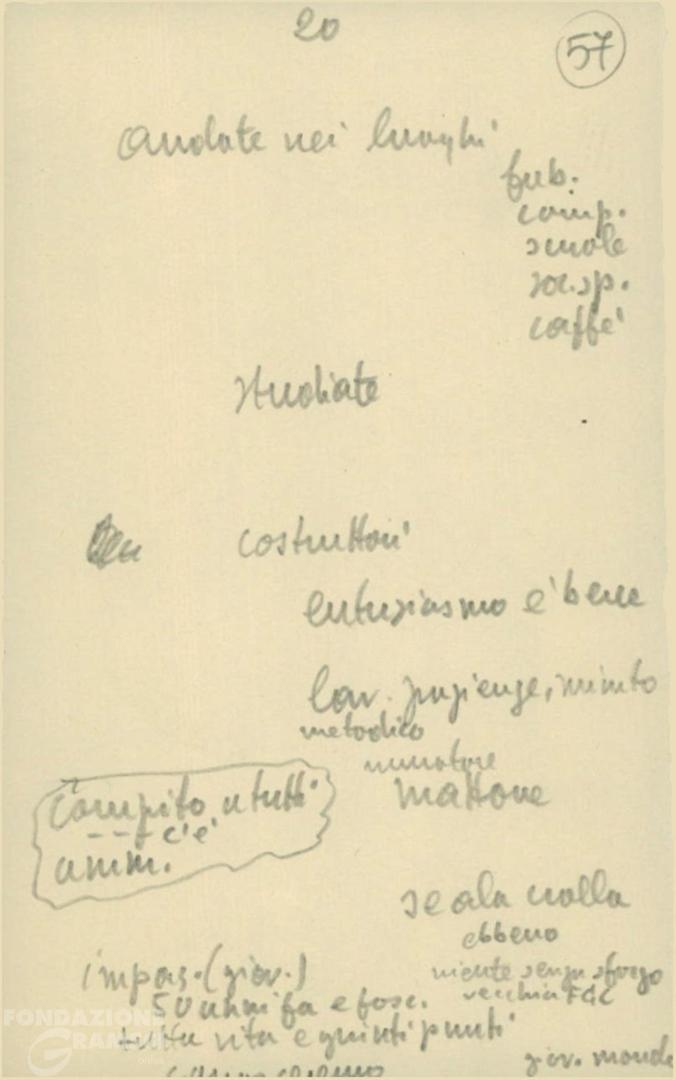 20
57
andate nei luoghi
fab.
comp.
scuole
soc. sp.
caffè
studiate
costruttori
entusiasmo è bene
lav. pazienze, minuto
metodico
muratore
mattone
compito a tutti
--- c'è
amm.
se ala
ebbene
impas. (giov.)
niente senza sforzo
vecchia FGC
50 anni fa e fosc.
tutta vita e quinti punti
giov. monde
FONDAZIONE
GRAMSCI